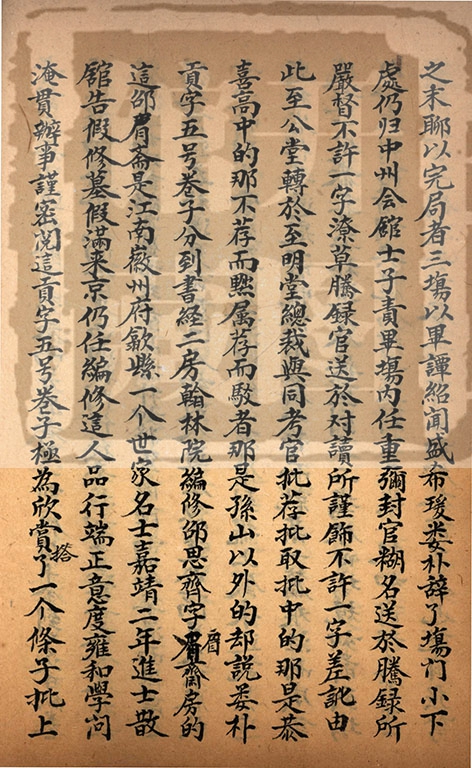 之末聊以完局者三塲以畢譚紹聞盛希瑗娄朴辞了塲门小下
處仍归中州会舘士子責畢塲内任重彌封官糊名送於騰録所
嚴督不許一字潦草騰録官送於对讀所謹飾不許一字差訛由
此至公堂轉於至明堂總裁與同考官批荐批取批中的那是恭
喜高中的那不荐而黜属荐而駁者那是孫山以外的却説娄朴
貢字五号卷子分到書経二房翰林院編修邵思齊字肩齋房的
這邵肩斋是江南徽州府歙縣一个世家名士嘉靖二年進士散
舘告假修墓假滿来京仍任編修這人品行端正意度雍和學问
淹貫辦事謹密閲這貢字五号卷子極為欣賞搭了一个條子批上